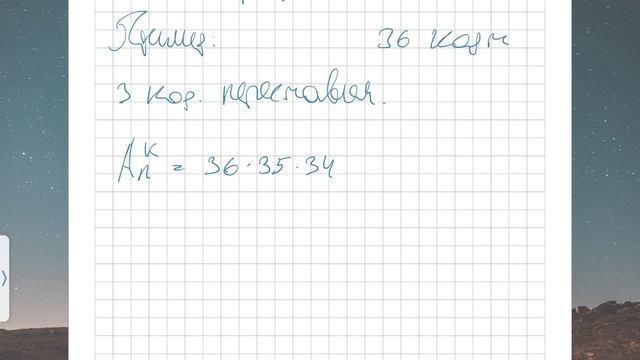 Пример: 36 карт
3 кар. переставля.
A_n^k = 36·35·34